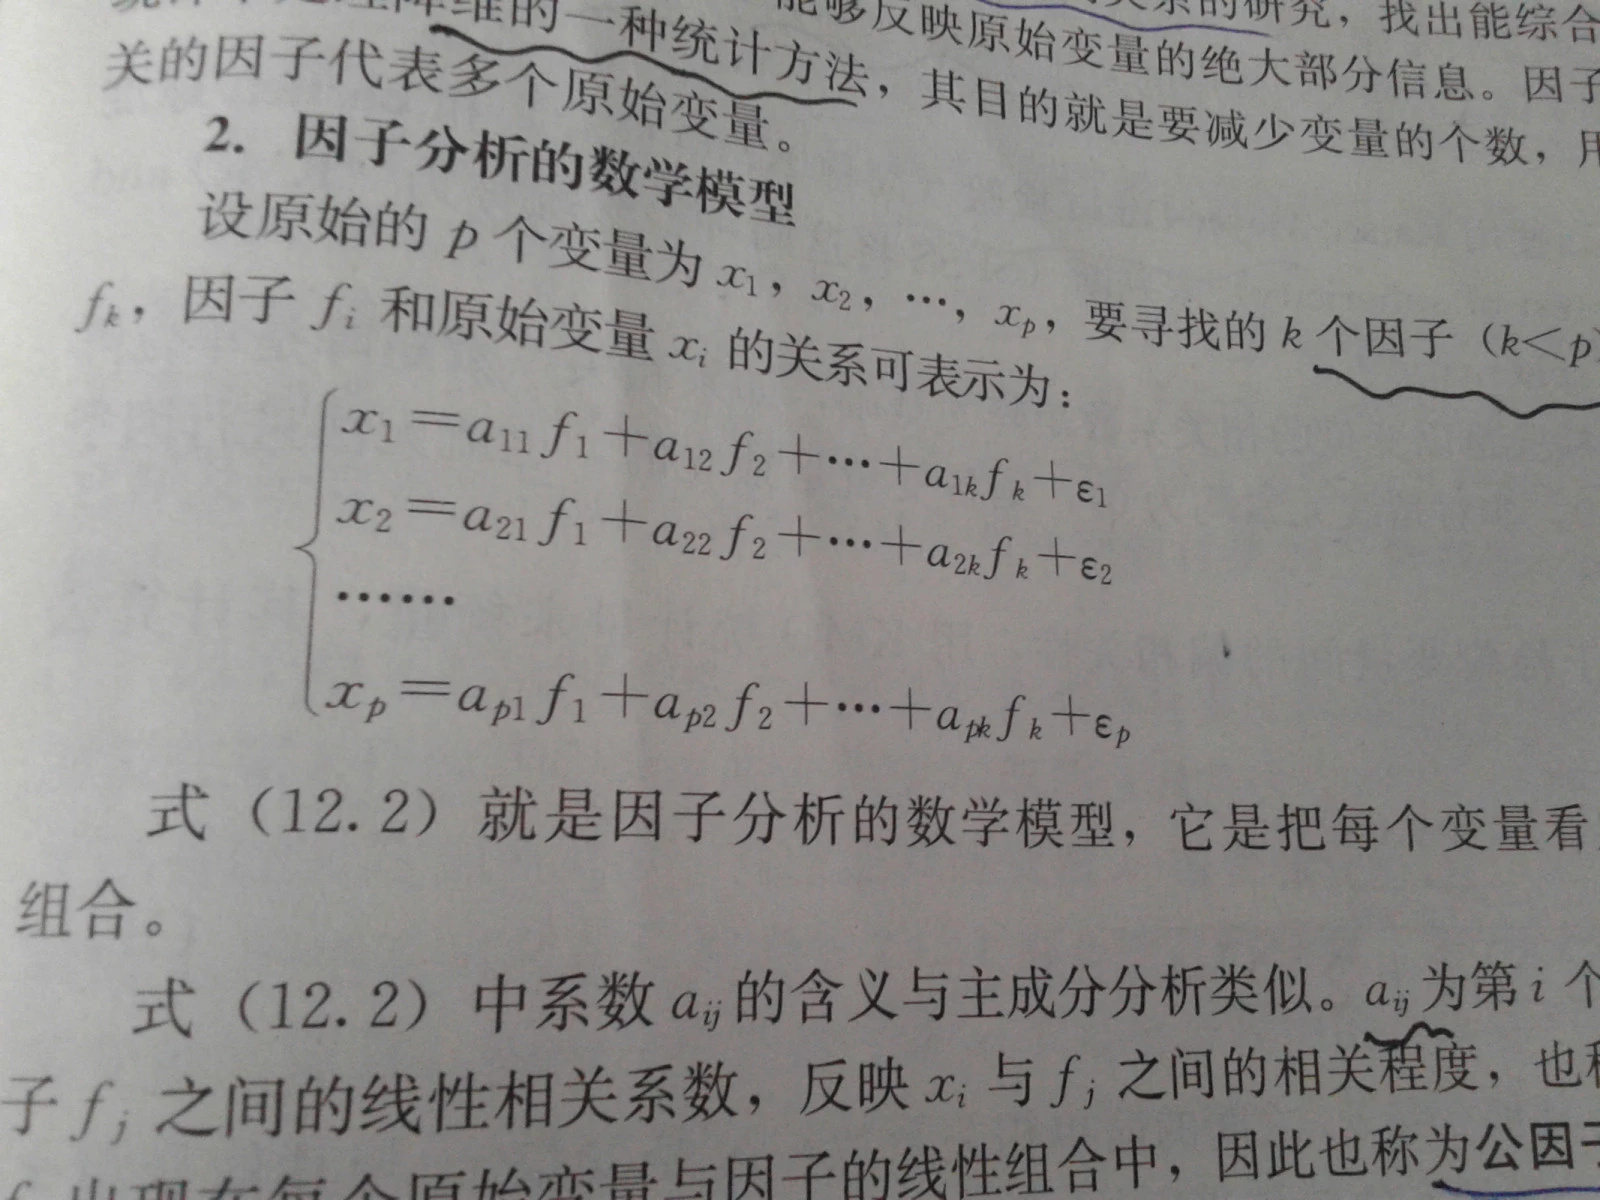 维的一种统计方法，其目的就是要减少变量的个数，用
能够反映原始变量的绝大部分信息。因子
关系的研究，找出能综合
关的因子代表多个原始变量。
2. 因子分析的数学模型
设原始的 p 个变量为 x₁，x₂，…，xₚ，要寻找的 k 个因子（k＜p）
fₖ，因子 fᵢ 和原始变量 xᵢ 的关系可表示为：
x₁＝a₁₁f₁＋a₁₂f₂＋…＋a₁ₖfₖ＋ε₁
x₂＝a₂₁f₁＋a₂₂f₂＋…＋a₂ₖfₖ＋ε₂
……
xₚ＝aₚ₁f₁＋aₚ₂f₂＋…＋aₚₖfₖ＋εₚ
式（12.2）就是因子分析的数学模型，它是把每个变量看
组合。
式（12.2）中系数 aᵢⱼ 的含义与主成分分析类似。aᵢⱼ 为第 i 个
子 fⱼ 之间的线性相关系数，反映 xᵢ 与 fⱼ 之间的相关程度，也
出现在每个原始变量与因子的线性组合中，因此也称为公因子